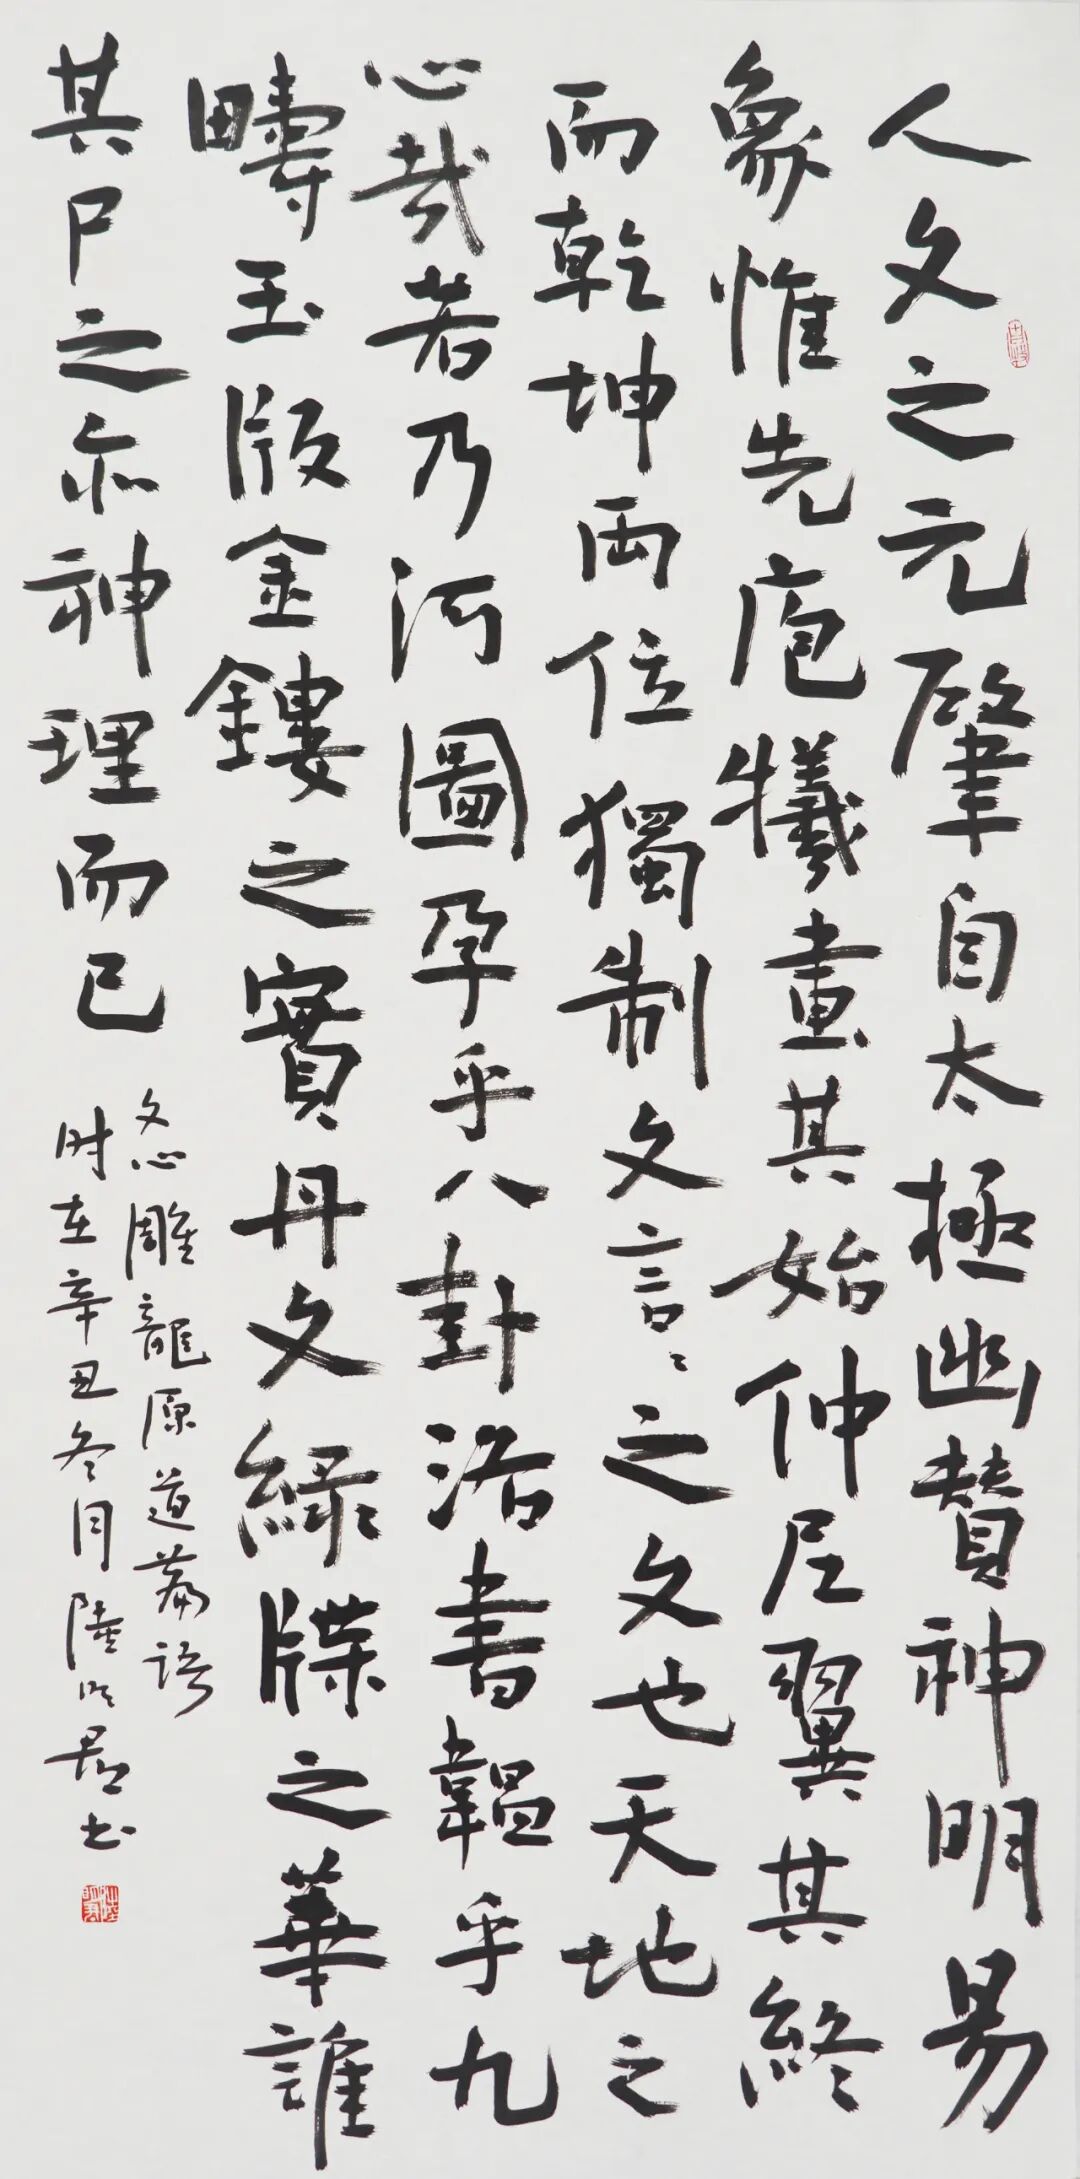 人文之元肇自太極幽贊神明易
象惟先庖犧畫其始仲尼翼其終
而乾坤兩位獨制文言々之文也天地之
心哉若乃河圖孕乎八卦洛書韞乎九
疇玉版金鏤之實丹文綠牒之華誰
其尸之亦神理而已
文心雕龍原道篇語
时在辛丑冬月陸明君书
陸明君